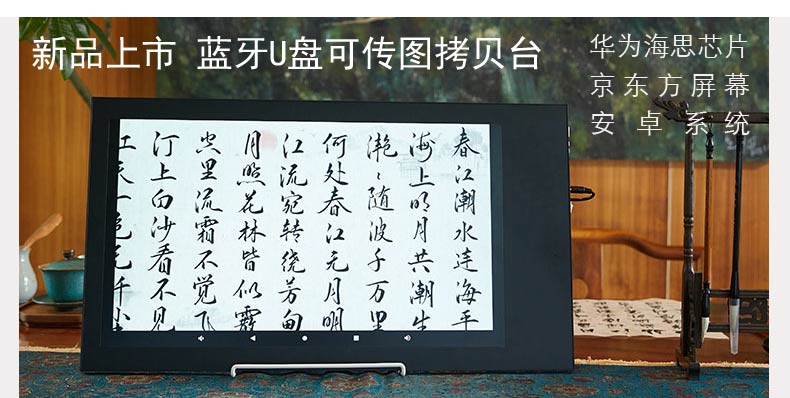 新品上市 蓝牙U盘可传图拷贝台
华为海思芯片
京东方屏幕
安卓系统
春江潮水连海平
海上明月共潮生
滟〻随波千万里
何处春江无月明
江流宛转绕芳甸
月照花林皆似霰
空里流霜不觉飞
汀上白沙看不见
江天一色无纤尘